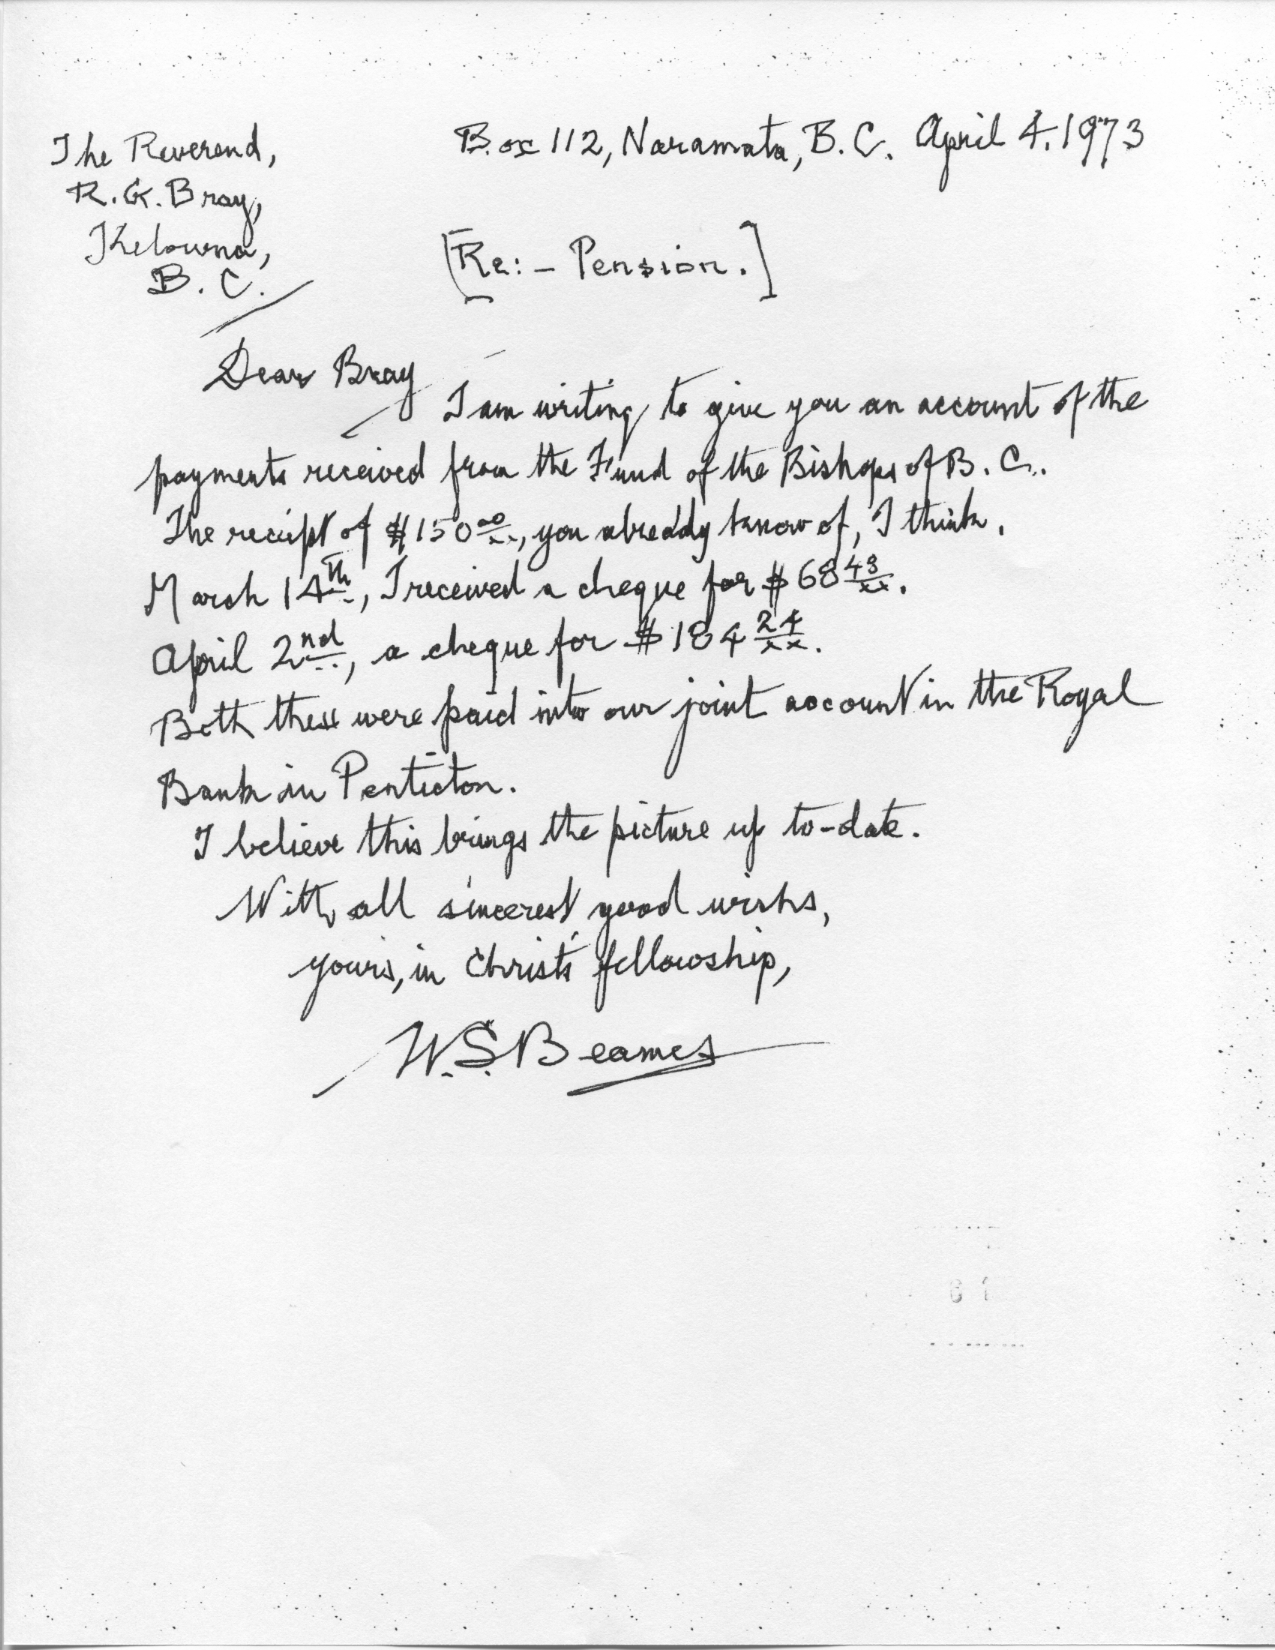 Box 112, Naramata, B.C. April 4. 1973
The Reverend,
R. G. Bray,
Kelowna,
B.C.
[Re:- Pension.]
Dear Bray
I am writing to give you an account of the
payments received from the Fund of the Bishops of B.C..
The receipt of $150 00/xx, you already know of, I think.
March 14th, I received a cheque for $68 43/xx.
April 2nd, a cheque for $184 24/xx.
Both these were paid into our joint account in the Royal
Bank in Penticton.
I believe this brings the picture up to-date.
With all sincerest good wishes,
yours, in Christ's fellowship,
W.S. Beames